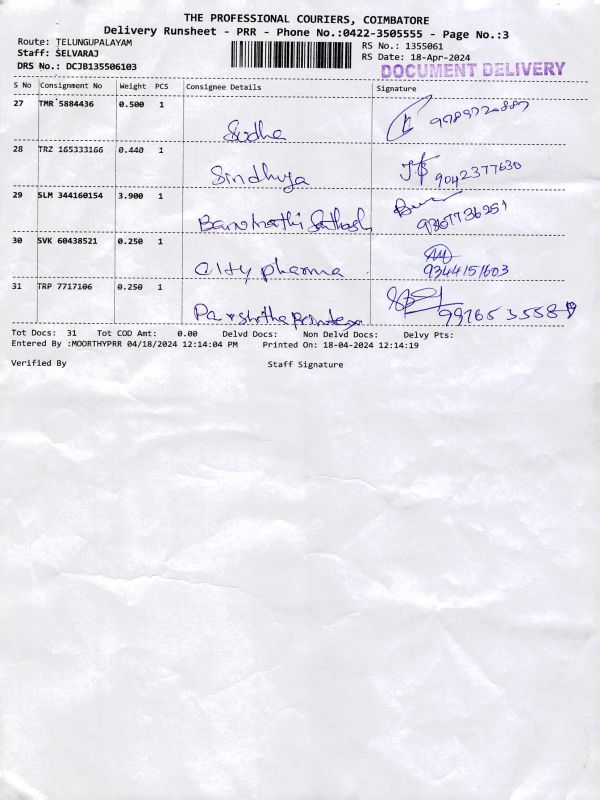 THE PROFESSIONAL COURIERS, COIMBATORE
Delivery Runsheet - PRR - Phone No.:0422-3505555 - Page No.:3
Route: TELUNGUPALAYAM
Staff: SELVARAJ
DRS No.: DCJB135506103
RS No.: 1355061
RS Date: 18-Apr-2024
DOCUMENT DELIVERY
S No Consignment No Weight PCS Consignee Details Signature
27 TMR 5884436 0.500 1
Sudha
28 TRZ 165333166 0.440 1
Sindhuja 9042377630
29 SLM 344160154 3.900 1
30 SVK 60438521 0.250 1
City pharma 9344151603
31 TRP 7717106 0.250 1
Tot Docs: 31 Tot COD Amt: 0.00 Delvd Docs: Non Delvd Docs: Delvy Pts:
Entered By :MOORTHYPRR 04/18/2024 12:14:04 PM Printed On: 18-04-2024 12:14:19
Verified By Staff Signature